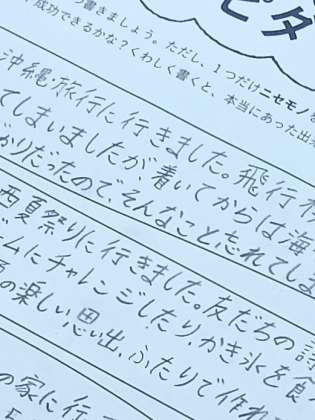 ピタ
つ書きましょう。ただし、1つだけニセモノを
成功できるかな？くわしく書くと、本当にあった出来
沖縄旅行に行きました。飛行
てしまいましたが、着いてからは海
かりだったので、そんなこと忘れてしま
西夏祭りに行きました。友だちの
ームにチャレンジしたり、かき氷を食
の楽しい思い出、ふたりで作れ
の家に行